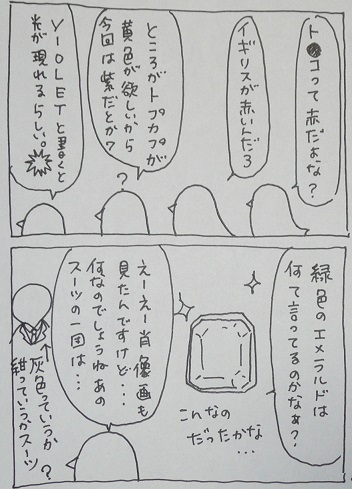 ト●コって赤だよな?
イギリスが赤いんだろ
ところがトプカプが
黄色が欲しいから
今回は紫だとか?
?
VIOLETと書くと
光が現れるらしい。
緑色のエメラルドは
何て言ってるのかなぁ?
こんなの
だったかな
…
えーえー肖像画も
見たんですけど…
何なのでしょうねあの
スーツの一団は…
灰色っていうか
紺っていうかスーツ
?